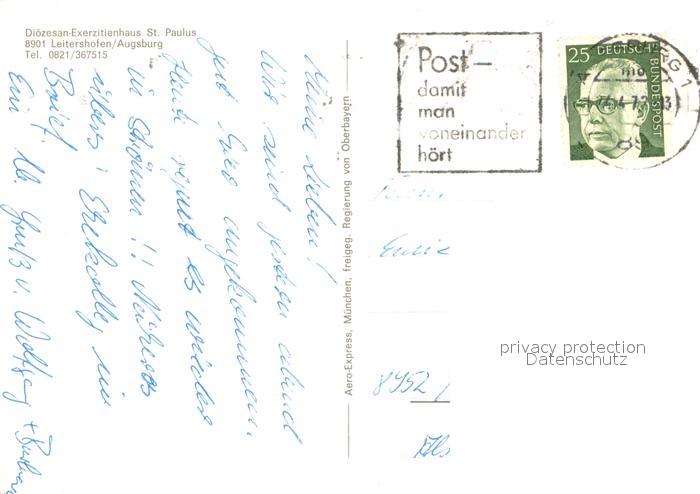 Diözesan-Exerzitienhaus St. Paulus
8901 Leitershofen/Augsburg
Tel. 0821/367515
Meine Lieben!
Wir sind gestern abend
gut hier angekommen.
Heute regnet es wieder
in Strömen!! Näheres
übers im
Brief.
Ein lb Gruß v. Wolfgang +
Aero-Express, München, freigeg. Regierung von Oberbayern
Post-
damit
man
voneinander
hört
25 DEUTSCHE
BUNDESPOST
89
8952
privacy protection
Datenschutz